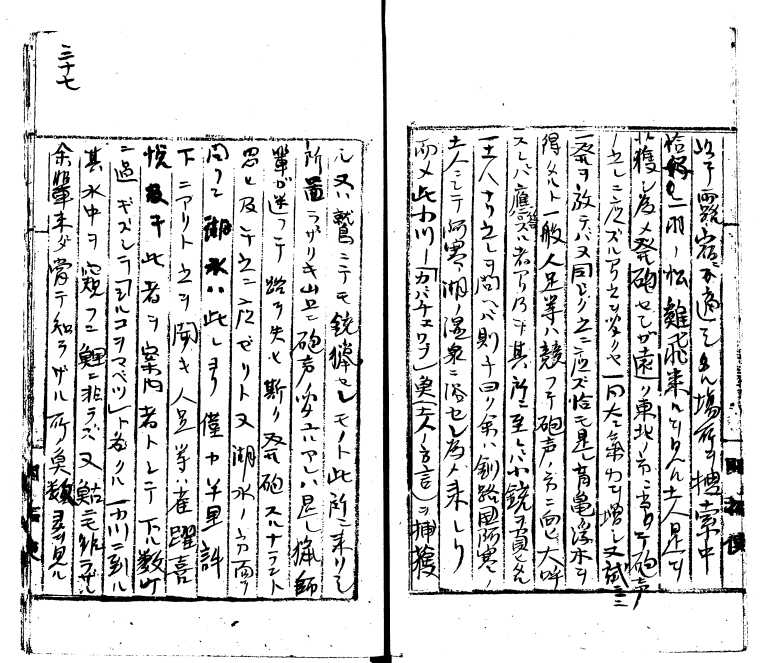 此ニ露宿ニ適シタル場所ヲ捜索中
恰好シ一羽ノ松雞飛来レリ見ル土人是ヲ
獲ン為メ発砲セシガ遠ク東北ノ方ニ当リテ砲声
之レニ応ズルアリ之ヲ聞クヤ一同大ニ気力ヲ増シ又試ニ
一発ヲ放テバ又同ジク之ニ応ズ恰モ是レ盲亀ノ浮木ヲ
得タルト一般人足等ハ競フテ砲声ノ方ニ向ヒ大呼
スレバ應答スル者アリ乃チ其所ニ至レバ小銃ヲ負ヒタル
土人ナリ之レヲ問ヘバ則チ曰ク余ハ釧路国阿寒ノ
土人ニシテ阿寒湖ノ温泉ニ浴セン為メ来レリ
而メ此小川ノ「カバチェㇷ゚」魚土人ノ方言ヲ捕獲
シ又ハ鷲ニテモ銃猟セシモノト此所ニ来リシ
所図ラザリキ山上ニ砲声ノ聞ユルアレバ是レ猟師
輩ガ迷フテ路ヲ失ヒ斯ク発砲スルナラント
思ヒ及テ之ニ応ゼリト又湖水ノ方向ヲ
問フニ湖水ハ此レヨリ僅カ半里許
下ニアリト之ヲ聞キ人足等ハ雀躍喜
悦 乃チ此者ヲ案内者トシテ下ル数町
ニ過ギズシテ「シルコヲマベツ」ト名クル一小川ニ到ル
其水中ヲ窺フニ鯉ニ非ラズ又鮎ニモ非ラザル
余輩未ダ嘗テ知ラザル所ノ魚類ヲ見ル
三十七